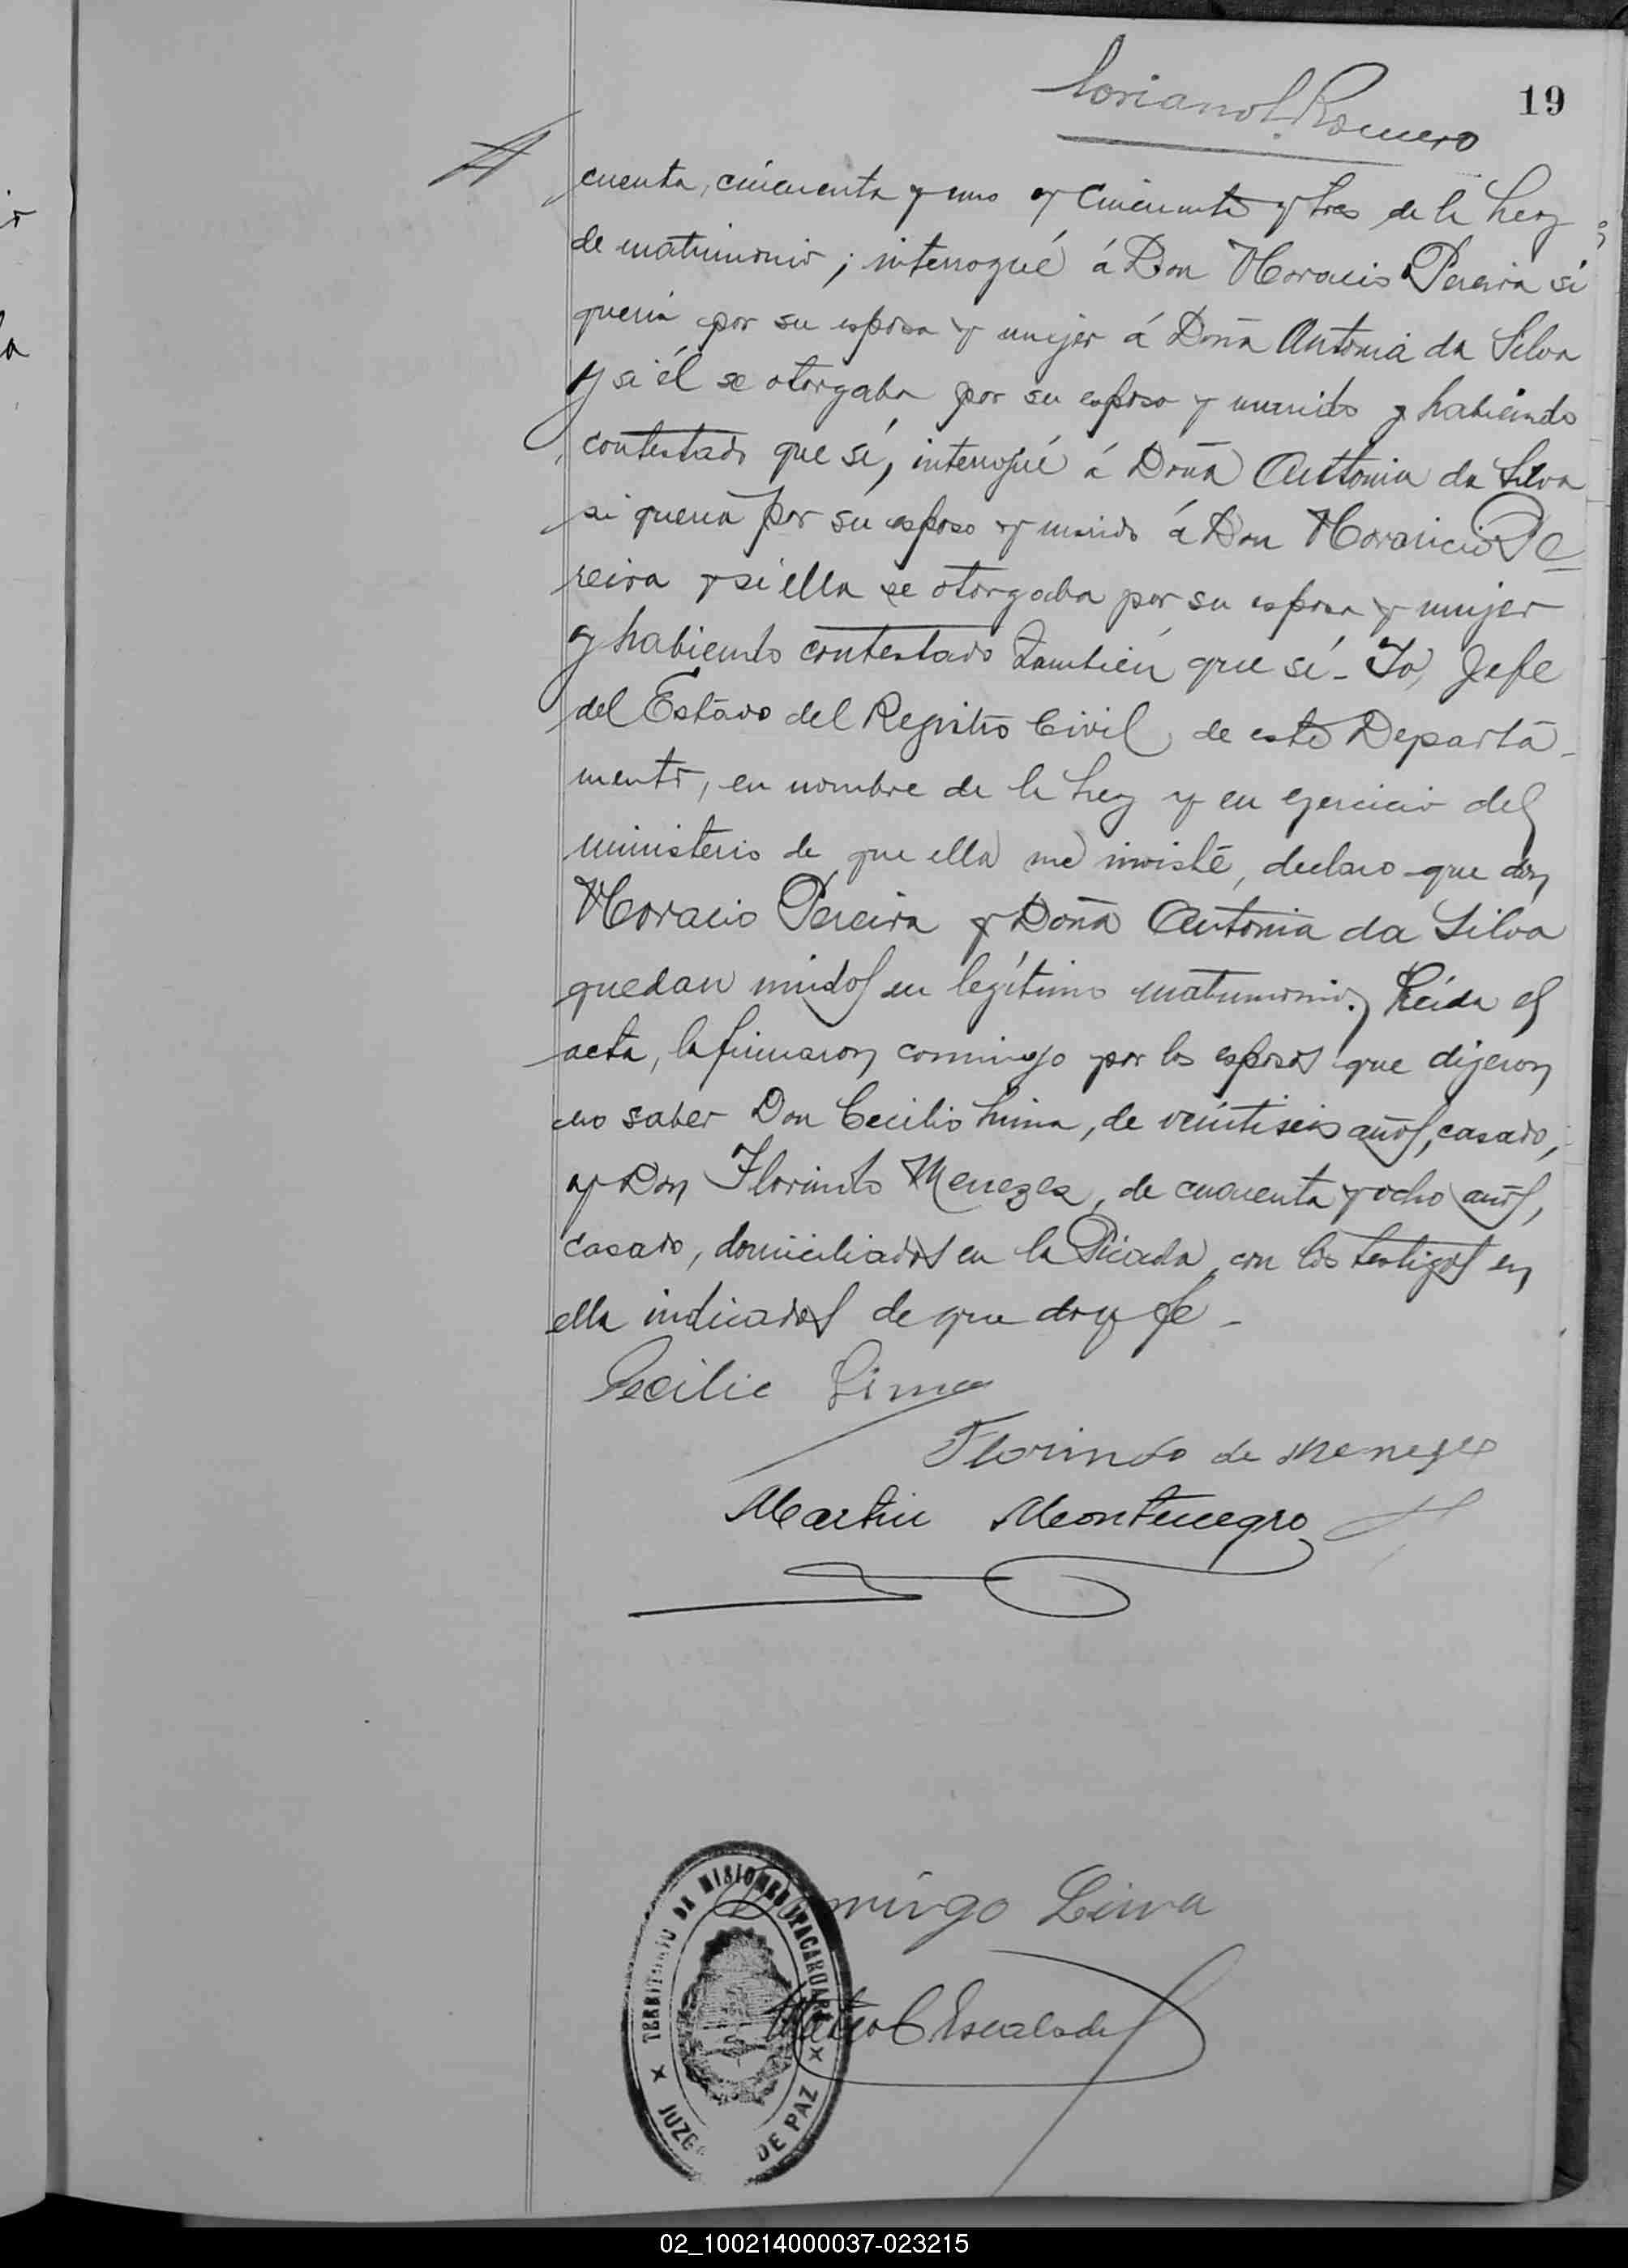 19
Romero
cuenta, cincuenta y uno y cincuenta y tres de la Ley
de matrimonio; interrogué á Don Horacio Pereira si
queria por su esposa y mujer á Doña Antonia da Silva
y si él se otorgaba por su esposo y marido y habiendo
contestado que sí, interrogué á Doña Antonia da Silva
si queria por su esposo y marido á Don Horacio Pe=
reira y si ella se otorgaba por su esposa y mujer
y habiendo contestado también que sí_ Yo, Jefe
del Estado del Registro Civil, de este Departa_
mento, en nombre de la Ley y en ejercicio del
ministerio de que ella me inviste, declaro que don
Horacio Pereira y Doña Antonia da Silva
quedan unidos en legítimo matrimonio. Leida el
acta, la firmaron conmigo por los esposos que dijeron
no saber Don Cecilio Lima, de veintiseis años, casado,
y Don Florindo Menezes, de cuarenta y ocho años,
casado, domiciliados en la Picada, con los testigos en
ella indicados de que doy fe_
Cecilio Lima
Florindo de Menezes
Martin Montenegro
Domingo Leiva
C Escalada
TERRITORIO DE MISIONES
JUZG DE PAZ
02_100214000037-023215